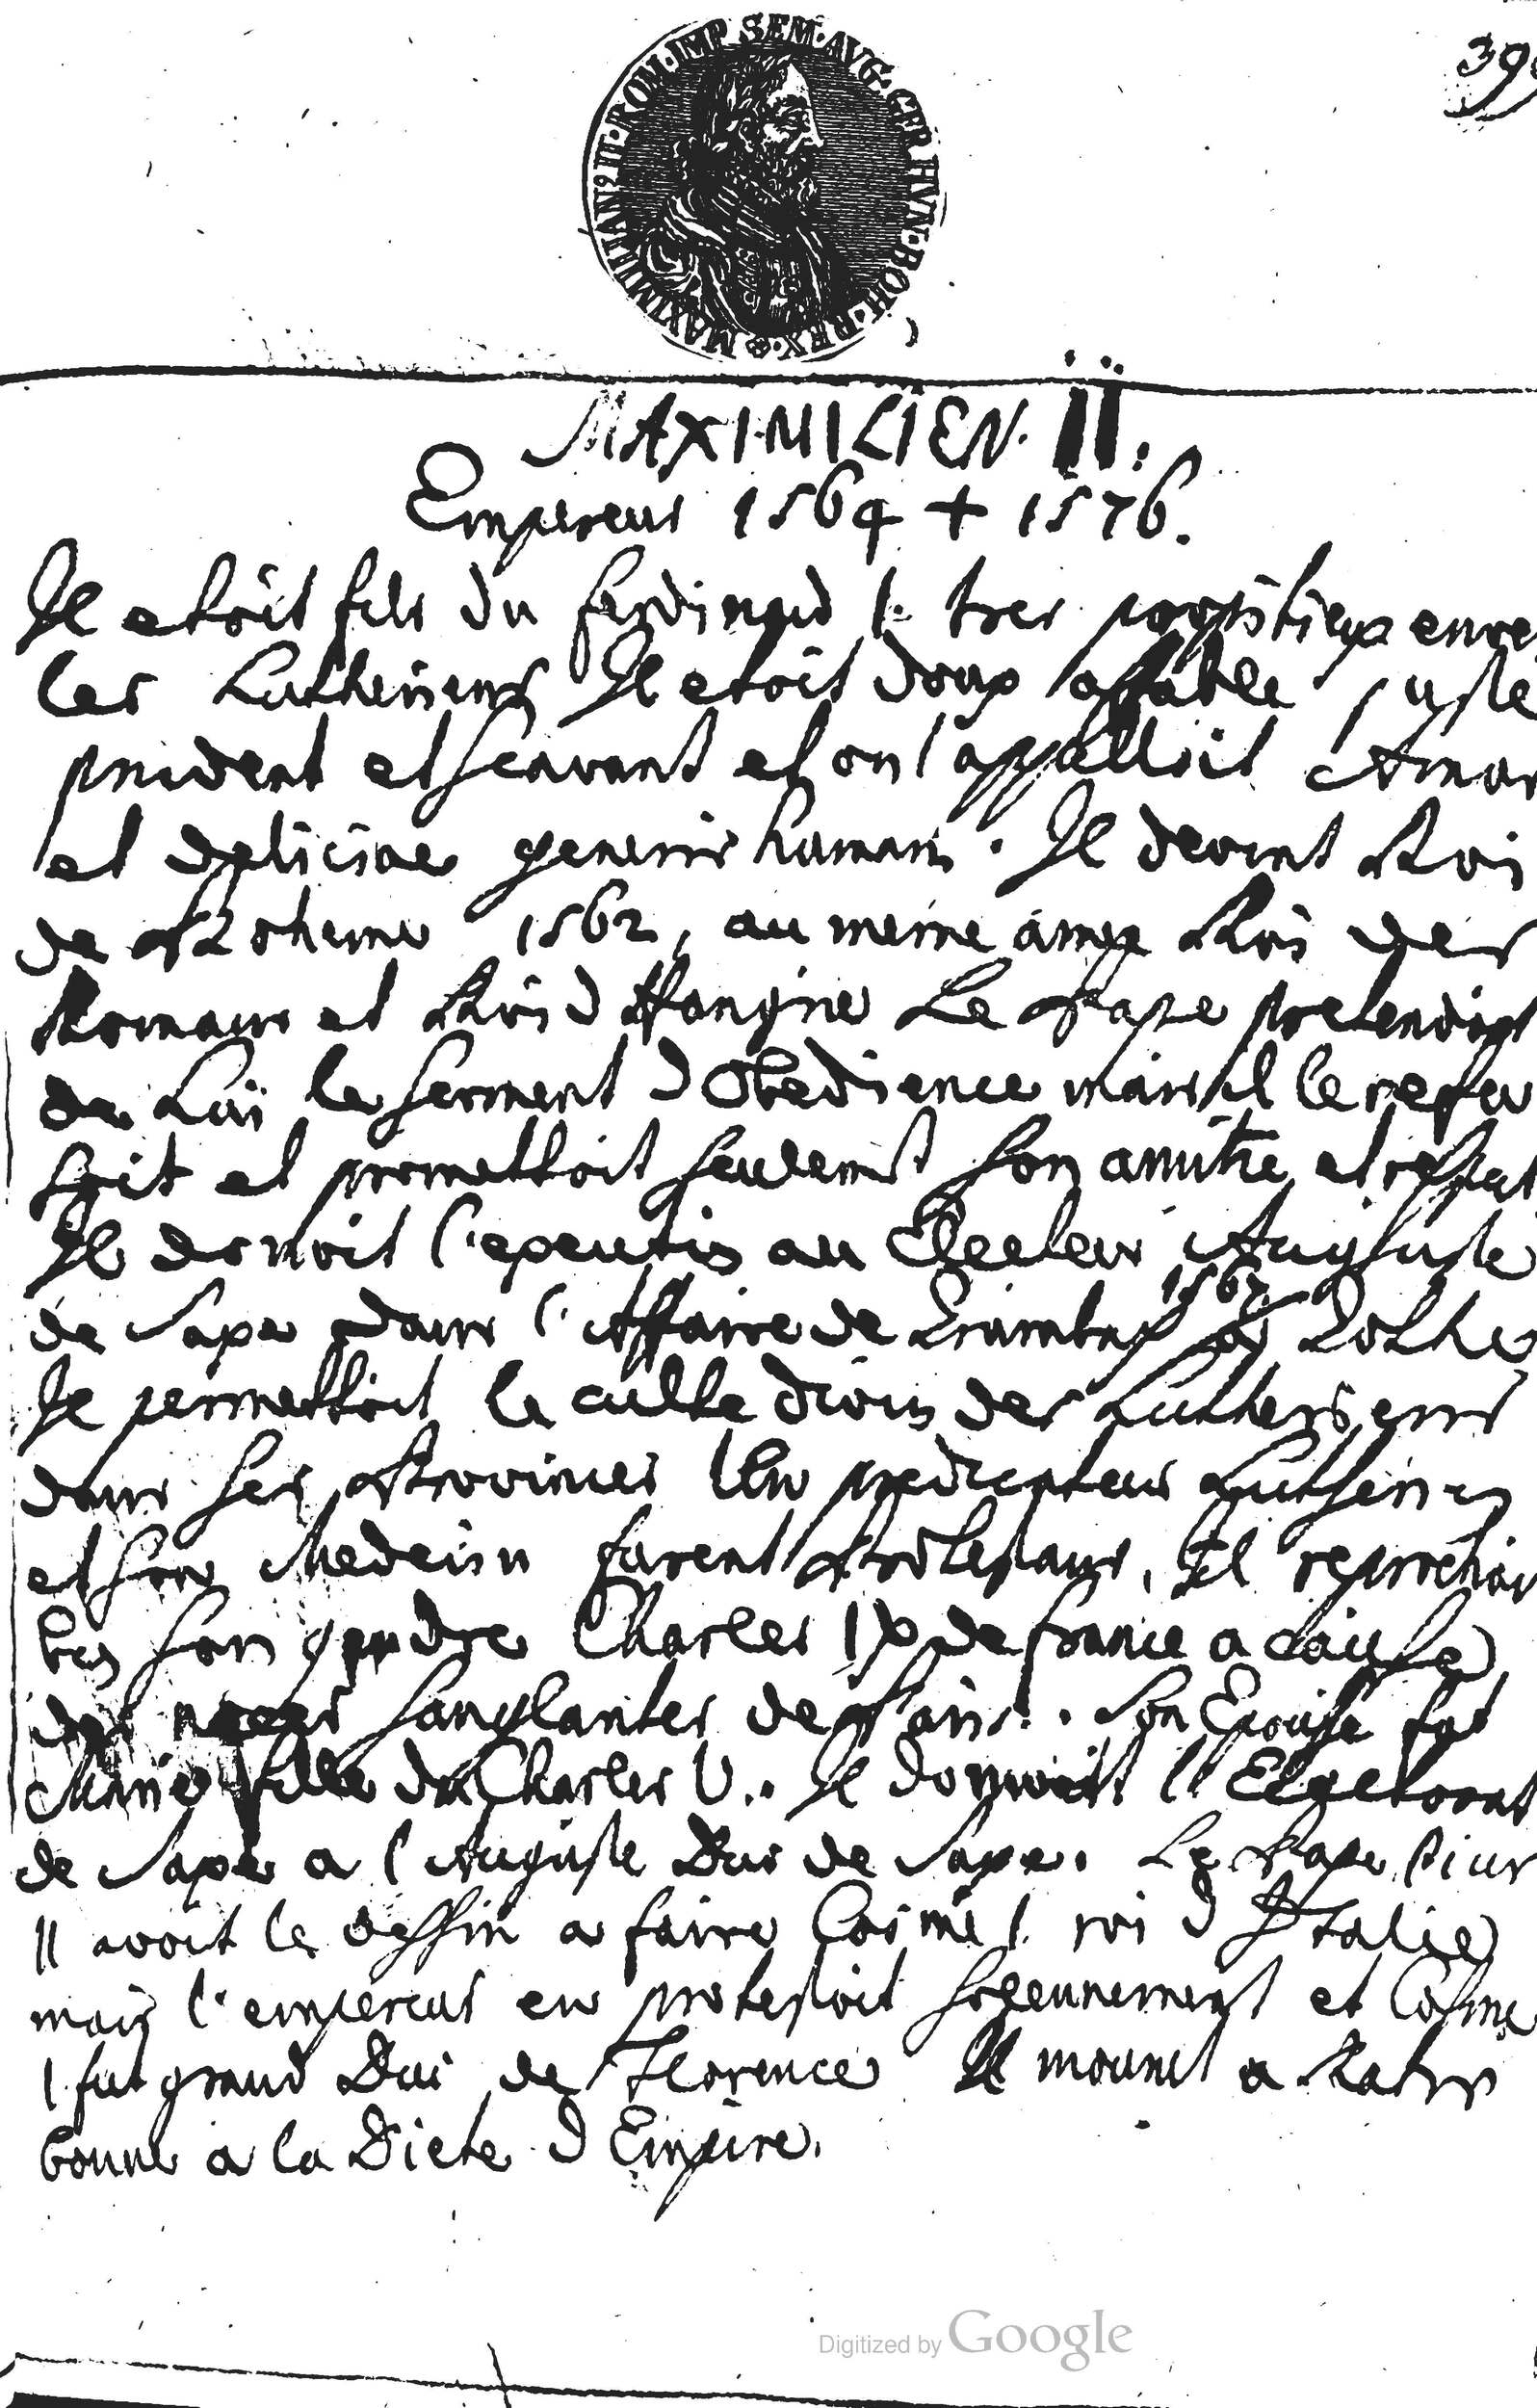 MAXIMILIAN9 II·ROM·IMP SEM·AVG·GER HVN·BOH·REX·
39
MAXIMILIEN. II.
Empereur 1564 + 1576.
Il etoit fils du Ferdinand I. tres propitieux enve
les Lutheriens Il etoit doux affable juste
prudent et scavant et on l'appelloit Amor
et deliciae generis humani. Il devint Roi
de Boheme 1562, au meme annee Roi des
Romains et Roi d Hongrie Le Pape pretendoit
de Lui le serment d Obedience mais il le refu
soit et promettoit seulement son amitie et respect
Il donoit l'execution au Electeur Auguste
de Saxe dans l'Affaire de Grumbach 1567 Gothe
Il permettoit le culte divin des Lutheriens
dans ses Provinces Un predicateur Lutherien
et son Medecin furent Protestans, Il reprochoit
son gendre Charles IX de France a cause
des noces sanglantes de Paris. Son Epouse fut
Marie fille du Charles V.. Il donnoit l'Electorat
de Saxe a l'Auguste Duc de Saxe. Le Pape Pius
II avoit le dessin a faire Cosme I. roi d Italie
mais l'empereur en protestoit solennement et Cosme
I fut grand Duc de Florence Il mourut a Ratis
bonne a la Diete d Empire.
Digitized by Google